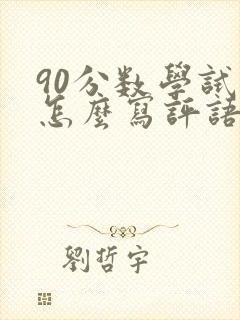 90分数學試
怎麼寫評語
劉哲宇